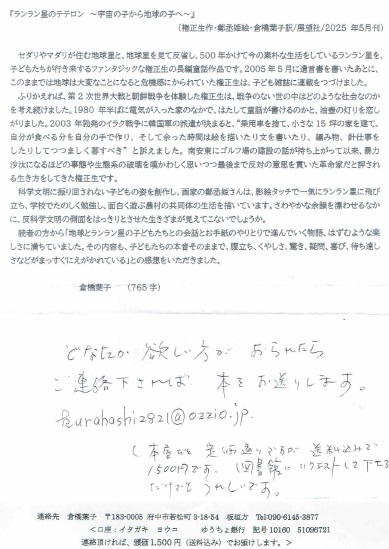 『ランラン星のテテロン ～宇宙の子から地球の子へ～』
（権正生作・鄭丞姫絵・倉橋葉子訳/展望社/2025 年5月刊）
セダリやマダリが住む地球星と、地球星を見て反省し、500 年かけて今の素朴な生活をしているランラン星を、
子どもたちが行き来するファンタジックな権正生の長編童話作品です。2005 年5月に遺言書を書いたあとに、
このままでは地球は大変なことになると危機感にかられていた権正生は、子ども雑誌に連載をつづけました。
ふりかえれば、第2次世界大戦と朝鮮戦争を体験した権正生は、戦争のない世の中はどのような社会なのか
を考え続けました。1980 年半ばに電気が入った家のなかで、はたして童話が書けるのかと、油壺の灯りを恋し
がりました。2003 年勃発のイラク戦争に韓国軍の派遣が決まると、“乗用車を捨て、小さな 15 坪の家を建て、
自分が食べる分を自分の手で作り、そして余った時間は絵を描いたり文を書いたり、編み物、針仕事を
したりしてつつましく暮すべき” と訴えました。南安東にゴルフ場の建設の話が持ち上がって以来、暴力
沙汰になるほどの事態や生態系の破壊を嘆かわしく思いつつ最後まで反対の意思を貫いた革命家だと評され
る生き方をしてきた権正生です。
科学文明に振り回されない子どもの姿を創作し、画家の鄭丞姫さんは、影絵タッチで一気にランラン星に飛び
立ち、学校でたのしく勉強し、面白く遊ぶ農村の共同体の生活を描いています。さわやかな余韻を漂わせるなか
に、反科学文明の側面をはっきりとさせた生きざまが見えてこないでしょうか。
読者の方から「地球とランラン星の子どもたちとの会話とお手紙のやりとりで進んでいく物語、はずむような楽
しさに満ちていました。その内容も、子どもたちの本音そのままで、腹立ち、くやしさ、驚き、疑問、喜び、待ち遠し
さなどがまっすぐにえがかれている」との感想をいただきました。
倉橋葉子 （765 字）
どなたか 欲しい方が おられたら
ご連絡下されば 本をお送りします。
kurahashi2821@ozzio.jp.
（本屋でも 定価通りですが 送料込みで
1500円です。（図書館にリクエストして下さる
だけでも うれしいです。
連絡先 倉橋葉子 〒183-0005 府中市若松町 3-18-54 板垣方 Tel:090-6145-3877
＜口座：イタガキ ヨウコ ゆうちょ銀行 記号 10160 51096721
連絡頂ければ、頒価 1,500 円（送料込み）でお届けします。＞